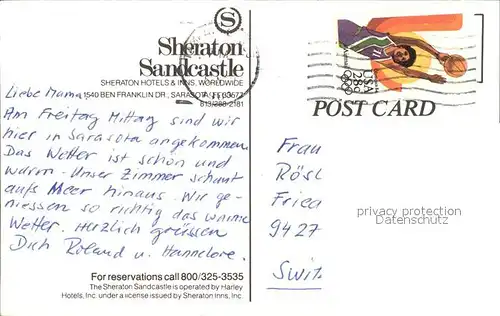 S
Sheraton
Sandcastle
SHERATON HOTELS & INNS, WORLDWIDE
1540 BEN FRANKLIN DR., SARASOTA, FL
813/388-2181
Liebe Mama
Am Freitag Mittag sind wir
hier in Sarasota angekommen.
Das Wetter ist schön und
warm. Unser Zimmer schaut
aufs Meer hinaus. Wir ge-
niessen so richtig das warme
Wetter. Herzlich grüssen
Dich Roland u. Hannelore.
For reservations call 800/325-3535
The Sheraton Sandcastle is operated by Harley
Hotels, Inc. under a license issued by Sheraton Inns, Inc.
USA
28c
POST CARD
Frau
Rösl
Fried
9427
Switz
privacy protection
Datenschutz